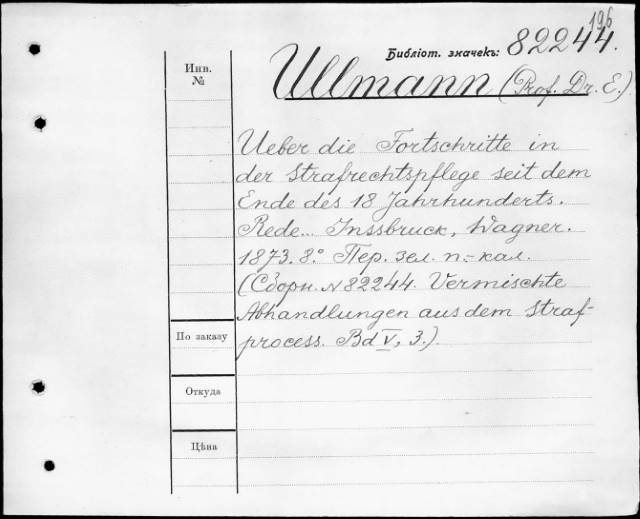 196
Библіот. значекъ: 82244.
Инв.
№
Ullmann (Prof. Dr. E.)
Ueber die Fortschritte in
der Strafrechtspflege seit dem
Ende des 18 Jahrhunderts.
Rede... Inssbruck, Wagner.
1873. 8.° Пер. зел. п.-кал.
(Сборн. №82244. Vermischte
Abhandlungen aus dem Straf-
process. Bd V, 3.).
По заказу
Откуда
Цѣна